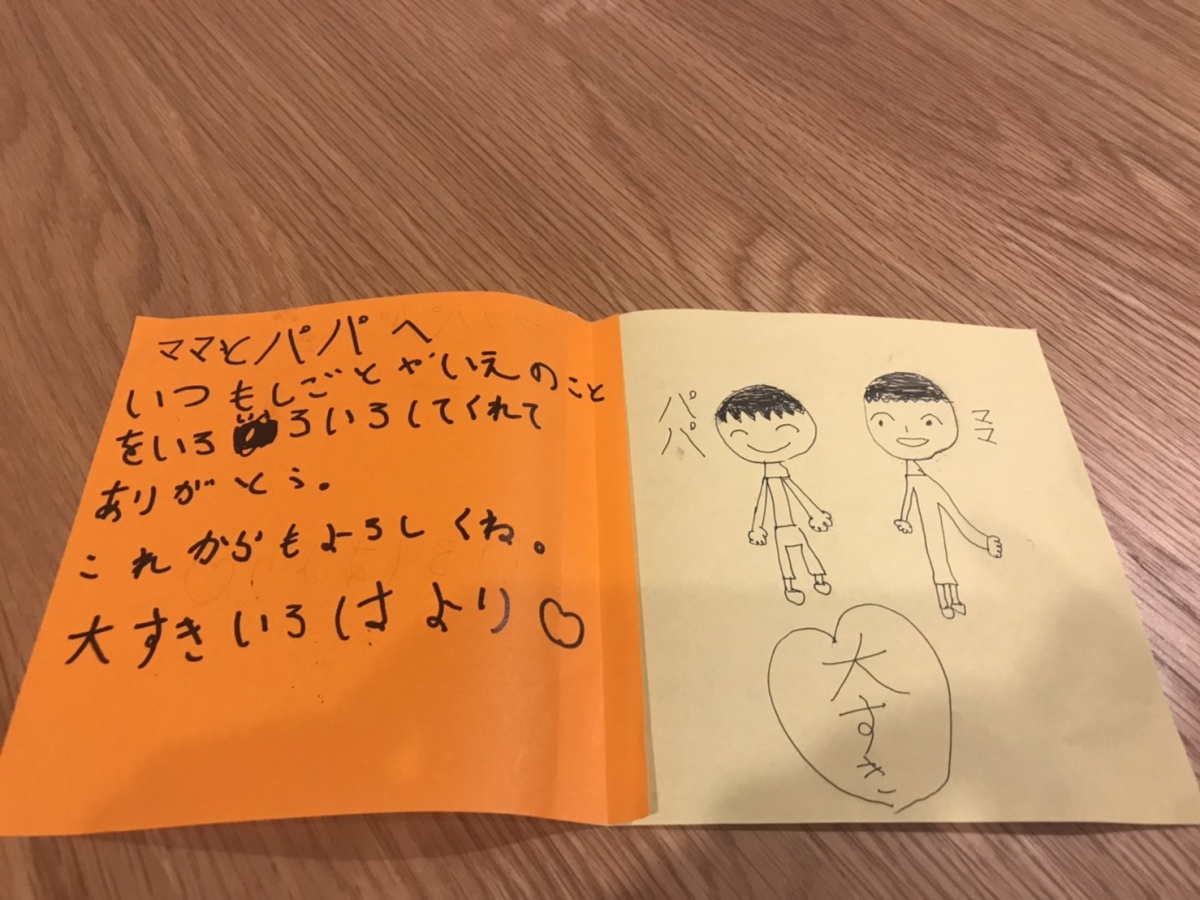 ママとパパへ
いつもしごとやいえのこと
をいろろいろしてくれて
ありがとう。
これからもよろしくね。
大すきいろはより
パパ
ママ
大すき